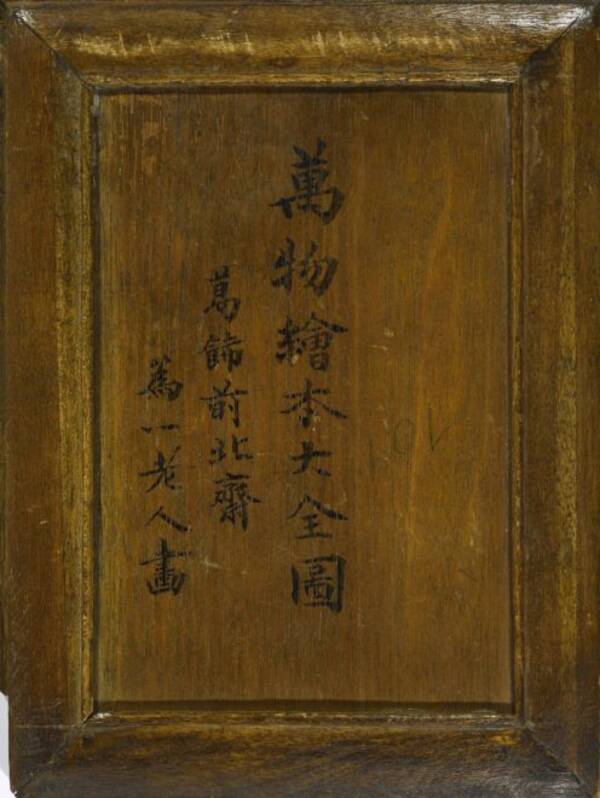 萬物繪本大全圖
葛飾前北齋
為一老人畫
101